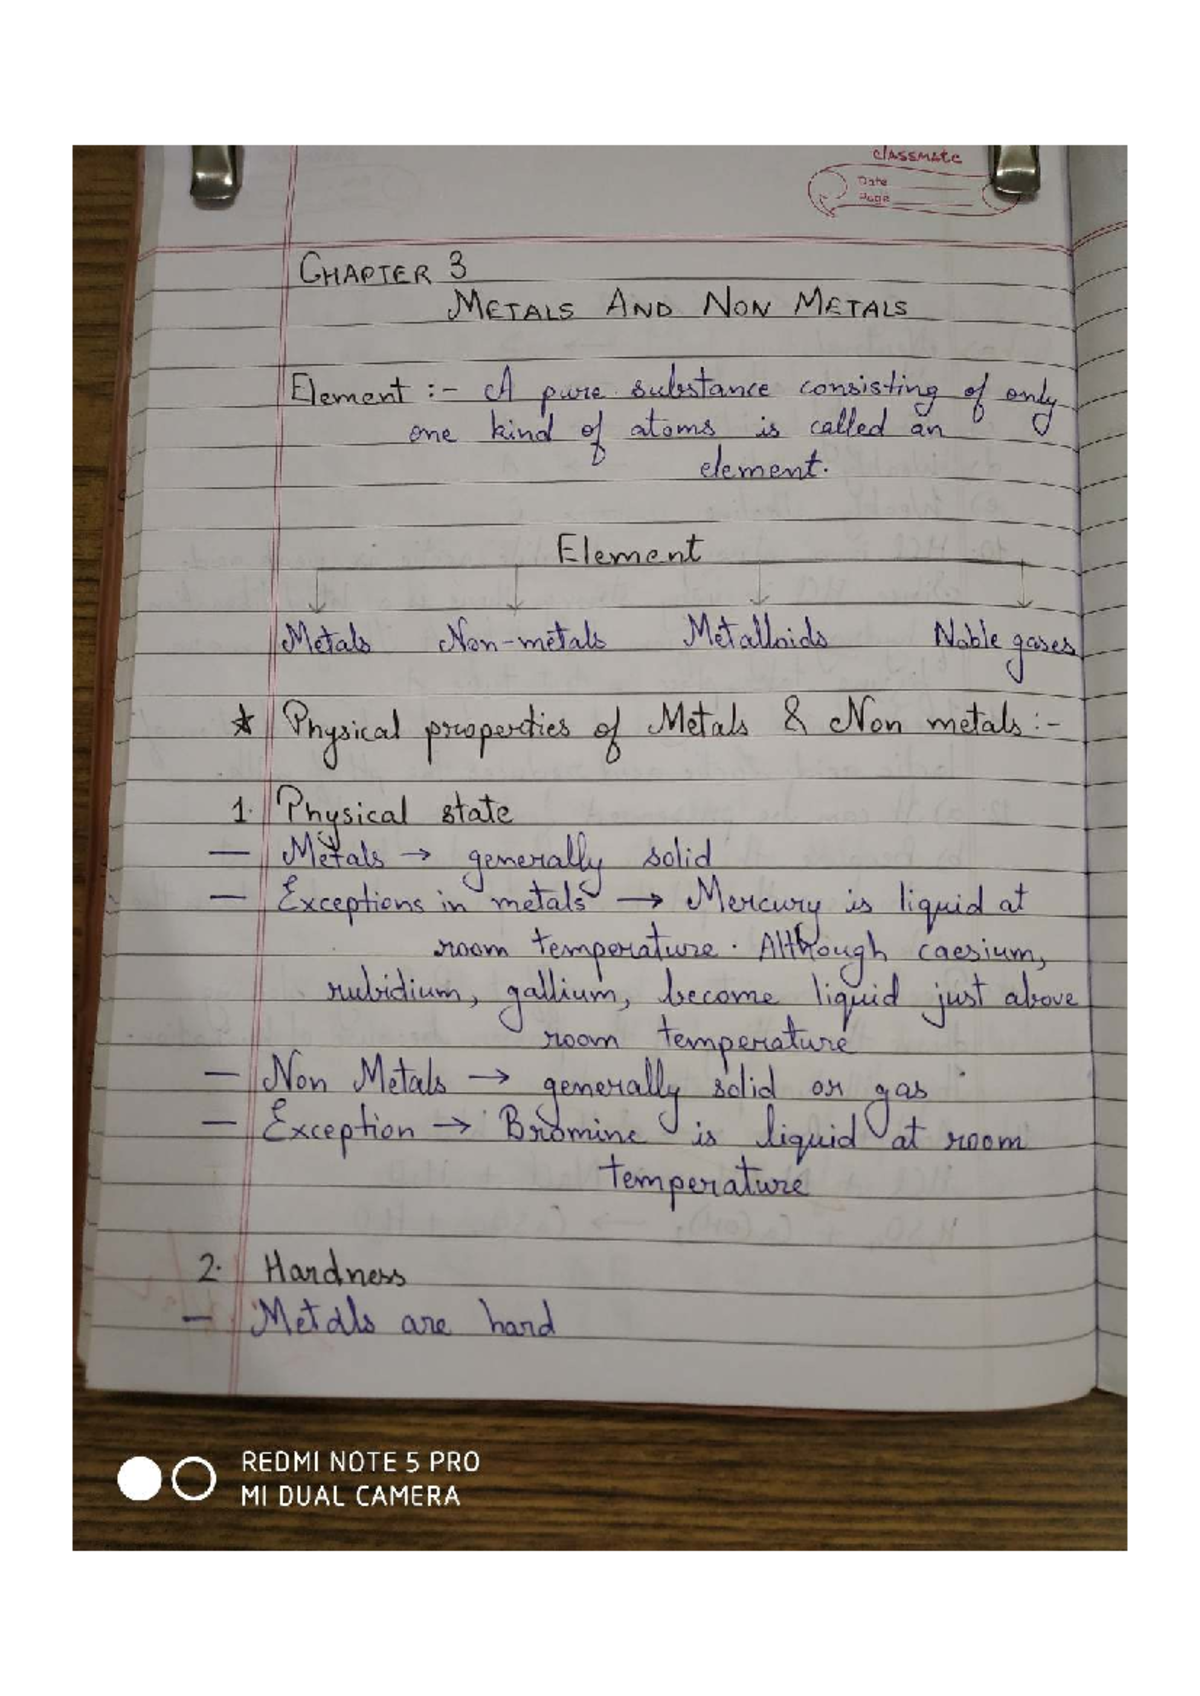 classmate
Date
Page
CHAPTER 3
METALS AND NON METALS
Element :- A pure substance consisting of only
one kind of atoms is called an
element.
Element
Metals Non-metals Metalloids Noble gases
★ Physical properties of Metals & Non metals :-
1. Physical state
— Metals → generally solid
— Exceptions in metals → Mercury is liquid at
room temperature. Although caesium,
rubidium, gallium, become liquid just above
room temperature
— Non Metals → generally solid or gas
— Exception → Bromine is liquid at room
temperature
2. Hardness
— Metals are hard
REDMI NOTE 5 PRO
MI DUAL CAMERA